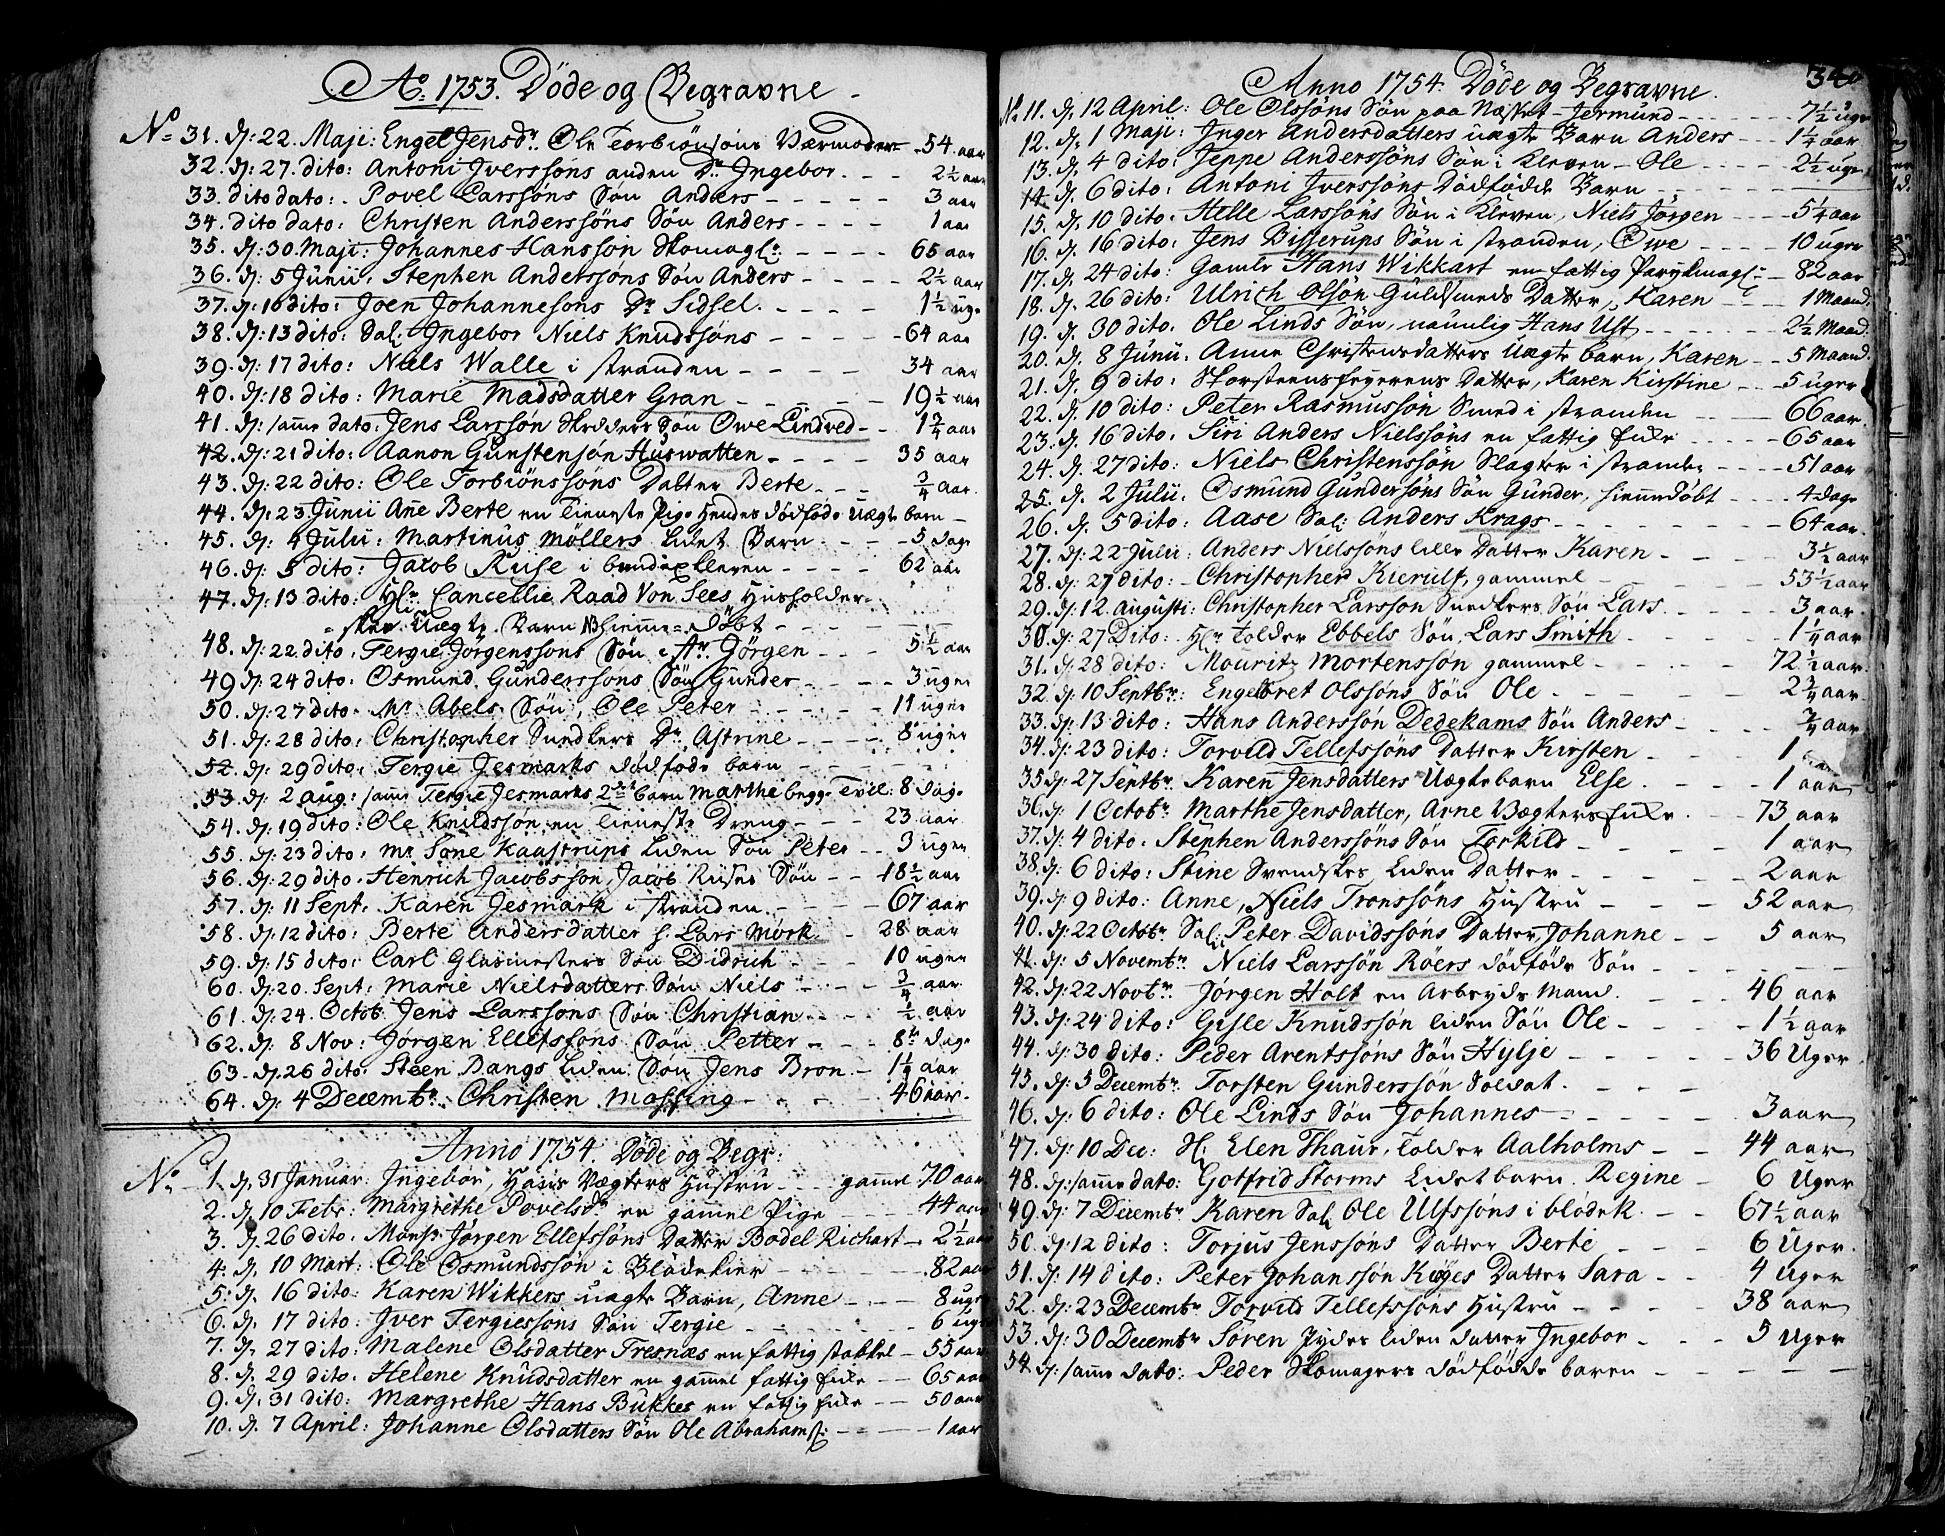 A.o 1753. Döde og Begravne
No 31. d: 22. Maji: Engel Jensd.r Ole Torbiönsöns Værmoder - 54 aar
32. d: 27. dito: Antoni Jverssöns anden D.r Jngebor. - 2½ aar
33. dito dato: Povel Larssöns Sön Anders - 3 aar
34. dito dato: Christen Anderssöns Sön Anders - 1 aar
35. d: 30 Maji: Johannes Hanssön Skomag: - 65 aar
36. d: 5 Junii: Stephen Anderssöns Sön Anders - 2½ aar
37. d: 16 dito: Joen Johannesöns D.r Sidsel. - 1½ uge
38. d: 13 dito: Sal: Jngebor Niels Knudssöns - 64 aar
39. d: 17 dito: Niels Walle i stranden - 34 aar
40. d: 18 dito: Marie Madsdatter Gran - 19½ aar
41. d: samme dato: Jens Larssön Skrædders Sön Owe Lindved - 1¾ aar
42. d: 21 dito: Aanon Gunstensön Huswatten - 35 aar
43. d: 22 dito: Ole Torbiönssöns Datter Berte - ¾ aar.
44. d: 23 Junii Ane Berte en Tieneste Pige hendes dödföde Uægte barn -
45. d: 4 Julii: Martinus Möllers Lidet Barn - 5 dage
46. d: 5 dito: Jacob Ruse i bendixkleven - 62 aar
47. d: 13 dito: H.r Cancellie Raad Von Sees Husholder-
skes Uægte Barn NB hieme-döbt -
48. d: 22 dito: Tergie Jörgenssöns Sön Jörgen - 5½ aar
49 d: 24 dito: Osmund Gunderssöns Sön Gunder - 3 uger
50. d: 27 dito: M.r Abels Sön, Ole Peter - 11 uger
51. d: 28 dito: Christopher Snedkers D.r Astrine - 8 uger
52. d: 29 dito: Tergie Jesmarks dödföde barn -
53. d: 2 Aug: samme Tergie Jesmarks 2.det barn Marthe begge Tvil: 8 dage
54. d: 19 dito: Ole Knudssön en Tieneste Dreng - 23 aar
55. d: 23 dito: Mr Söne Kaastrups Liden Sön Peter - 3 uger
56. d: 29 dito: Henrich Jacobssön, Jacob Ruses Sön - 18½ aar
57. d: 11 Sept. Karen Jesmark i stranden. - 67 aar
58. d: 12 dito: Berte Andersdatter s. Lars Mork - 28 aar
59. d: 15 dito: Carl Glasmesters Sön Didrich - 10 uger
60. d: 20. Sept: Marie Nielsdatters Sön Niels - ¾ aar
61. d: 24. Octob. Jens Larssöns Sön Christian - ½ aar
62. d: 8 Nov: Jörgen Ellefsöns Sön Petter - 8te dage
63. d. 26 dito: Steen Bangs Liden Sön Jens Bron - 1¼ aar
64. d: 4 Decemb.r Christen Massing - 46 aar.
Anno 1754. Döde og Begr:
No 1. d. 31 Januar: Jngebor, Hans Vægters Hustru - gammel 70 aar
2. d. 10 Febr: Margrethe Povelsd.r en gamel Pige - 44 aar
3. d. 26 dito. Mons.r Jörgen Ellefssöns Datter Bodel Richart - 2½ aar
4. d. 10 Mart: Ole Osmundssön i Blödekier - 82 aar
5. d. 16 dito: Karen Wikkers uægte Barn, Anne - 8 uger
6. d. 17 dito: Jver Tergiessöns Sön Tergie - 6 uger
7. d. 27 dito: Malene Olsdatter Tresnæs en fattig stakkel - 55 aar
8. d. 29 dito: Helene Knudsdatter en gamel fattig Enke - 65 aar
9. d. 31 dito: Margrethe Hans Bukkes en fattig Enke - 50 aar
10. d. 7 April: Johanne Olsdatters Sön Ole Abrahams: - 1 aar
Anno 1754. Döde og Begravne.
No 11. d. 12 April: Ole Olssöns Sön paa Næsset Jermund - 7½ uger
12. d. 1 Maji: Jnger Andersdatters uægte Barn Anders - 1¼ aar
13. d. 4 dito: Jeppe Anderssöns Sön i Kleven - Ole - 2½ uger
14. d. 6 dito: Antoni Jverssöns Dödfödde Barn -
15. d. 10 dito: Helle Larssöns Sön i Kleven, Niels Jörgen - 5¼ aar
16. d. 16 dito: Jens Bisserups Sön i stranden, Owe - 10 uger
17. d. 24 dito: Gamle Hans Wikkart en fattig Parykmag: - 82 aar
18. d. 26 dito: Ulrich Olsön Guldsmeds Datter, Karen - 1 Maaned.
19. d. 30 dito: Ole Linds Sön, naunlig Hans Ust - 2½ Maaned.
20. d. 8 Junii. Anne Christensdatters Uægte barn, Karen - 5 Maaned.
21. d. 9 dito: Skorsteensfeyerens Datter, Karen Kirstine - 5 uger
22. d. 10 dito: Peter Rasmussön Smed i stranden - 66 aar.
23. d. 16 dito: Siri Anders Nielssöns en fattig Enke - 65 aar
24. d. 27 dito: Niels Christenssön Slagter i stranden - 51 aar
25. d. 2 Julii: Osmund Gunderssöns Sön Gunder, hiemedöbt - 4 dage
26. d. 5 dito: Aase Sal: Anders Krags - 64 aar.
27. d: 22 Julii: Anders Nielssöns lille Datter Karen - 3½ aar
28. d: 27 dito: Christopher Kierulf, gammel - 53½ aar
29. d: 12 Augusti: Christopher Larssön Snedkers Sön Lars - 3 aar
30. d: 27 Dito: H.r tolder Ebbels Sön, Lars Smith - 1¼ aar
31. d: 28 dito: Mouritz Mortenssön gammel - 72½ aar.
32. d: 10 Septb.r: Engebret Olssöns Sön Ole - 2¾ aar
33. d: 13 dito: Hans Anderssön Dedekams Sön Anders - ¾ aar
34. d: 23 dito: Torvild Tellefssöns Datter Kirsten - 1 aar
35 d: 27 Septb.r Karen Jensdatters Uægte barn Else - 1 aar
36. d: 1 Octob.r Marthe Jensdatter, Arne Vægters Enke. - 73 aar
37. d: 4 dito: Stephen Anderssöns Sön Torkild - 1 aar
38. d: 6 dito: Stine Svendskes Liden Datter - 2 aar
39. d: 9 dito: Anne, Niels Tronssöns Hustru - 52 aar
40. d: 22 Octob.r Sal: Peter Davidssöns Datter Johanne - 5 aar
41. d: 5 Novemb.r Niels Larssön Röers dödföde Sön -
42. d: 22 Novb.r Jörgen Holt en Arbeyds Mand. - 46 aar
43. d: 24 dito: Gisle Knudssön liden Sön Ole - 1½ aar
44. d: 30 dito: Peder Arentssöns Sön Hylje - 36 Uger
45. d: 5 Decemb.r Torsten Gunderssön Soldat. -
46. d: 6 dito: Ole Linds Sön Johannes - 3 aar
47. d: 10 Dec: Sl: Elen Thaur, Tolder Aalholms - 44 aar
48. d: samme dato: Gotfrid Storms Lidet barn. Regine - 6 Uger
49. d: 7 Decemb.r Karen Sal. Ole Ulfssöns i blödek. - 67½ aar
50. d: 12 dito: Torjus Jenssöns Datter Berte - 6 Uger.
51. d: 14 dito: Peter Johanssön Köges Datter Sara - 4 Uger
52. d: 23 Decemb.r Torvild Tellefssöns Hustru - 38 aar
53. d: 30 Decemb.r Sören Jydes liden datter Jngebor - 5 Uger
54. d: samme dato: Peder Skomagers dödfödde baren -